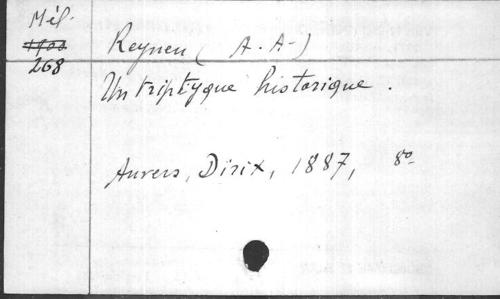 Mél.
1900
268
Reynen ( A. A-)
Un triptyque historique.
Anvers, Dirix, 1887, 8º